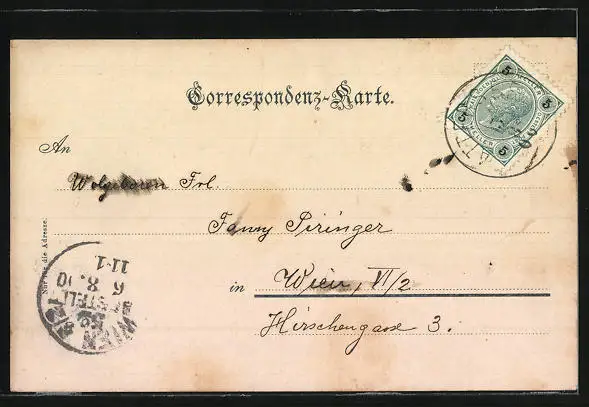 Correspondenz-Karte.
An
Wolgeboren Frl.
Fanny Piringer
in Wien, VI/2
Hirschengasse 3.
Nur für die Adresse.
5 5
5 5
WIEN
BESTELLT
6 8. 00
11-1